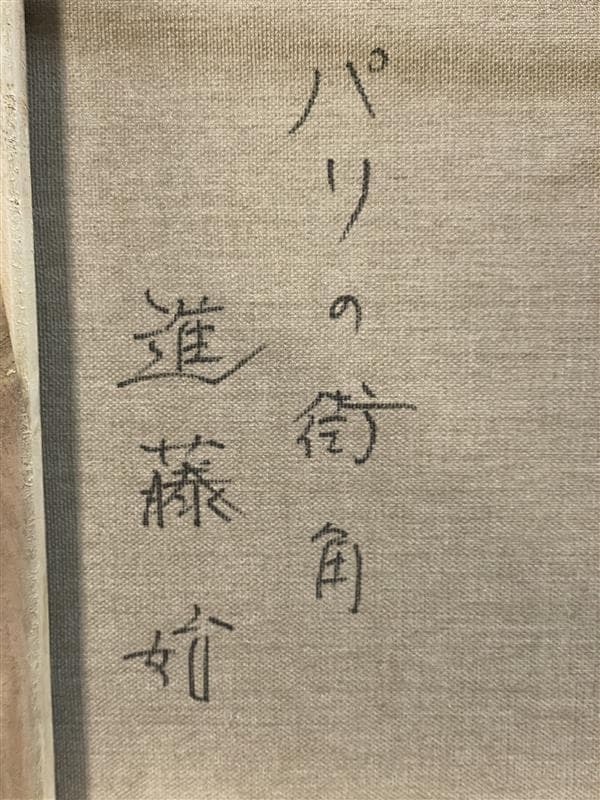 パリの街角
進藤妎